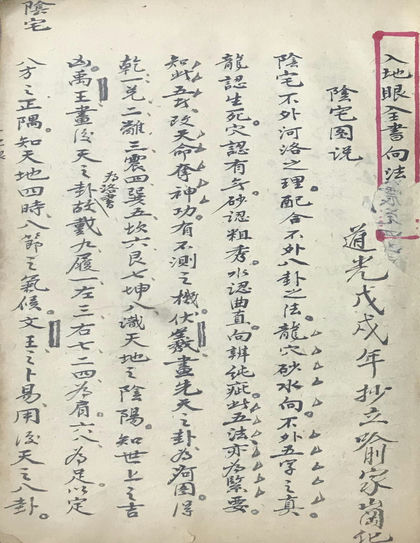 入地眼全書向法
道光戊戌年抄立喻家崗
陰宅图说
陰宅不外河洛之理配合不外八卦之法龍穴砂水向不外五字之真
龍認生死穴認有气砂認粗秀水認曲直向辨純疵此五法亦為緊要
知此五者改天命奪神功有不測之機伏羲畫先天之卦為河图淂
乾一兑二離三震四巽五坎六艮七坤八識天地之陰陽知世上之吉
凶禹王畫後天之卦為洛書故戴九履一左三右七二四為肩六八為足以定
八方之正隅知天地四時八節之氣候文王之卜易用後天之八卦
陰宅